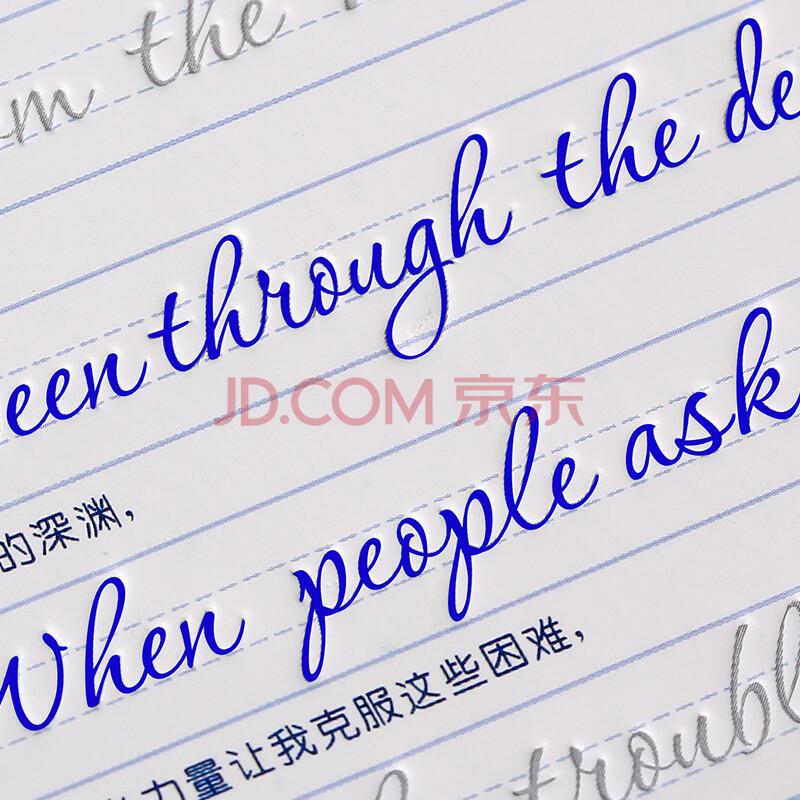 m the
een through the de
JD.COM 京东
的深渊,
When people ask
力量让我克服这些困难,
h troubl